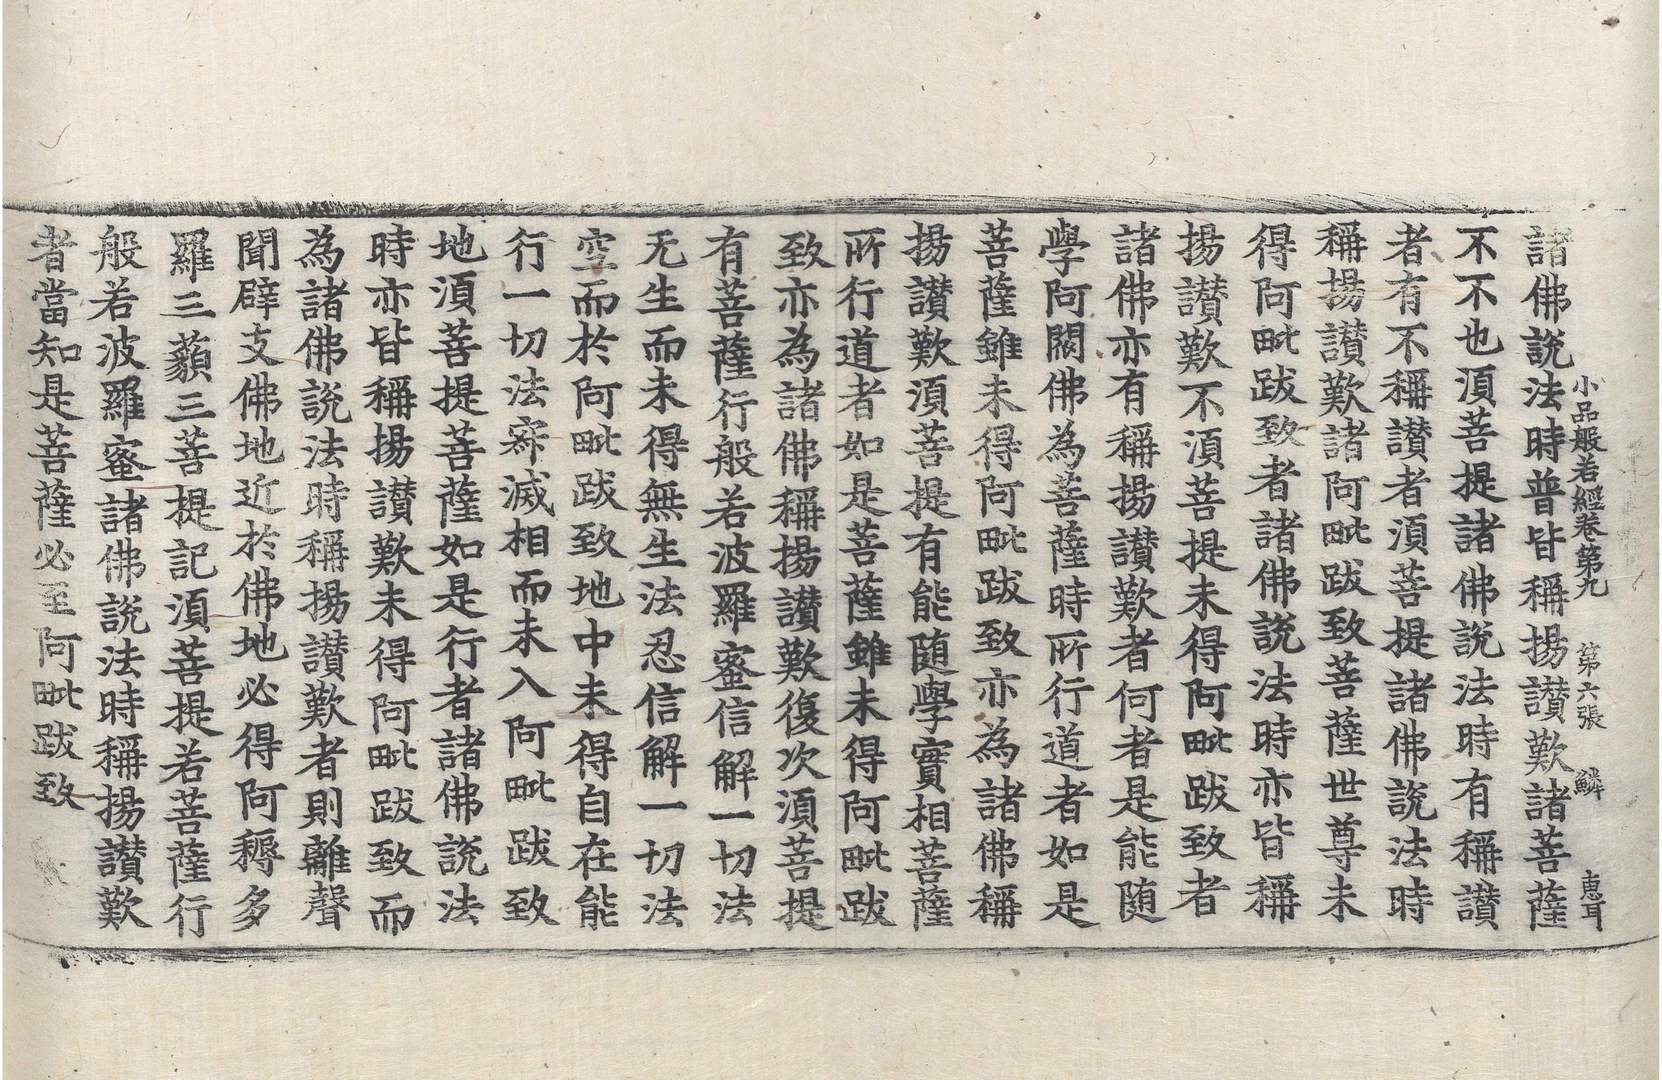 小品般若經卷第九 第六張 鱗 惠耳
諸佛說法時普皆稱揚讃歎諸菩薩
不不也湏菩提諸佛說法時有稱讃
者有不稱讃者湏菩提諸佛說法時
稱揚讃歎諸阿毗跋致菩薩世尊未
得阿毗跋致者諸佛說法時亦皆稱
揚讃歎不湏菩提未得阿毗跋致者
諸佛亦有稱揚讃歎者何者是能随
學阿閦佛為菩薩時所行道者如是
菩薩雖未得阿毗跋致亦為諸佛稱
揚讃歎湏菩提有能随學寶相菩薩
所行道者如是菩薩雖未得阿毗跋
致亦為諸佛稱揚讃歎復次湏菩提
有菩薩行般若波羅蜜信解一切法
无生而未得無生法忍信解一切法
空而於阿毗跋致地中未得自在能
行一切法寂滅相而未入阿毗跋致
地湏菩提菩薩如是行者諸佛說法
時亦皆稱揚讃歎未得阿毗跋致而
為諸佛說法時稱揚讃歎者則離聲
聞辟支佛地近於佛地必得阿耨多
羅三藐三菩提記湏菩提若菩薩行
般若波羅蜜諸佛說法時稱揚讃歎
者當知是菩薩必至阿毗跋致